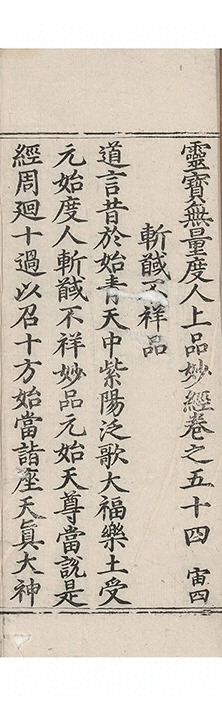 靈寶無量度人上品妙經卷之五十四 寅四
斬馘不祥品
道言昔於始青天中紫陽泛歌大福樂土受
元始度人斬馘不祥妙品元始天尊當說是
經周廻十過以召十方始當詣座天真大神